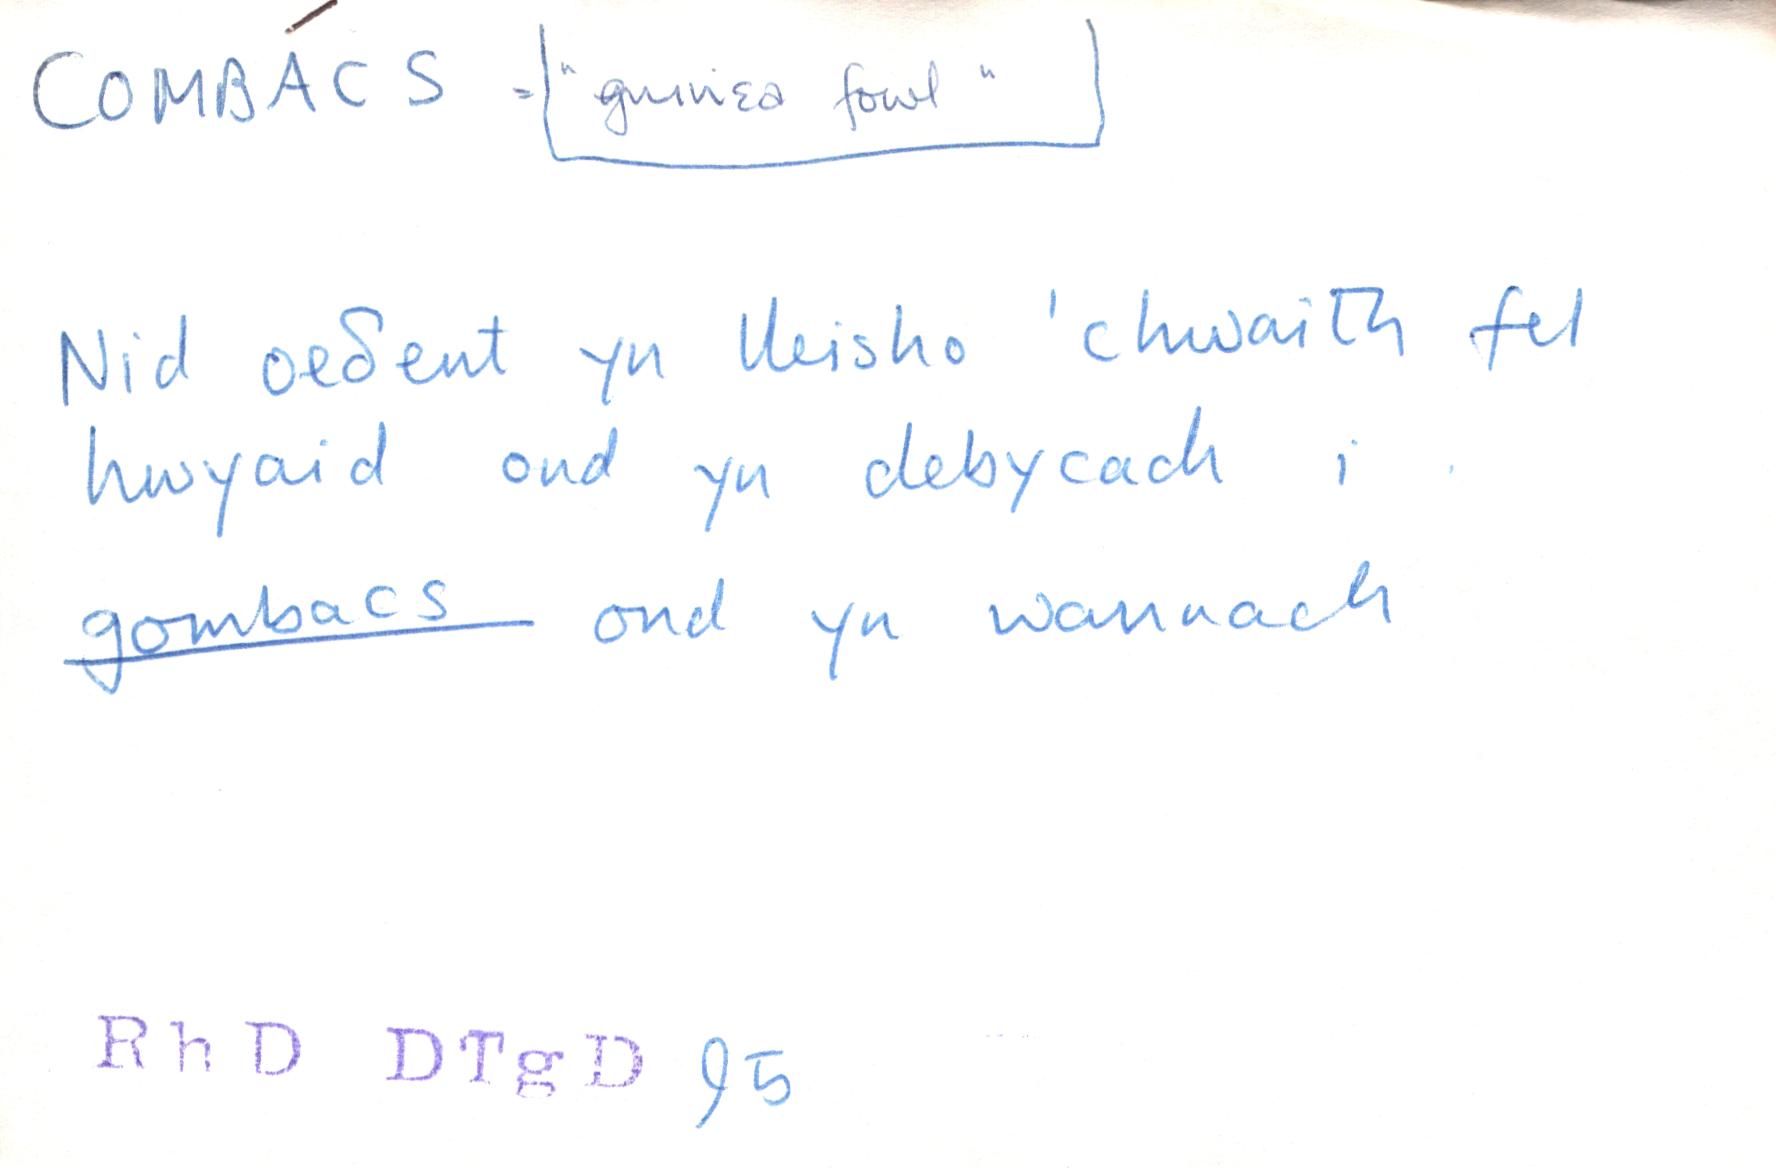 COMBÁCS = ["guinea fowl"]
Nid oeδent yn lleisho 'chwaith fel
hwyaid ond yn debycach i
gombacs ond yn wannach
RhD DTgD 95